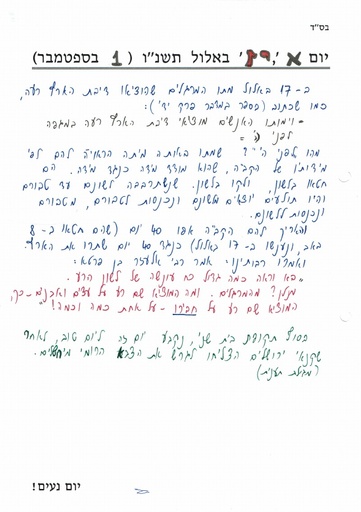 בס"ד
יום א', י"ז באלול תשנ"ו ( 1 בספטמבר)
ב- 17 באלול מתו המרגלים שהוציאו דיבת הארץ רעה,
כמו שכתוב (בספר במדבר פרק יד'):
"וימותו האנשים מוציאי דיבת הארץ רעה במגפה
לפני ה'"
מהו לפני ה'"? שמתו באותה מיתה הראויה להם לפי
מידותיו של הקב"ה, שהוא מודד מידה כנגד מידה. הם
חטאו בלשון, ולקו בלשון. שנשתרבבה לשונם עד טבורם
והיו תולעים יוצאים מלשונם ונכנסות לטבורם, מטבורם
ונכנסות ללשונם.
והאריך להם הקב"ה אפו 40 יום (שהם חטאו ב- 8
באב, ונענשו ב- 17 באלול) כנגד 40 יום שתרו את הארץ.
ואמרו רבותינו: אמר רבי אלעזר בן פרטא:
"בא וראה כמה גדול כח עונשה של לשון הרע.
מנלן? מהמרגלים. ומה המוציא שם רע על עצים ואבנים-כך,
המוציא שם רע על חבירו - על אחת כמה וכמה!"
בסוף תקופת בית שני, נקבע יום זה ליום טוב, לאחר
שקנאי ירושלים הצליחו לגרש את הצבא הרומי מירושלים.
(מגילת תענית)
יום נעים!